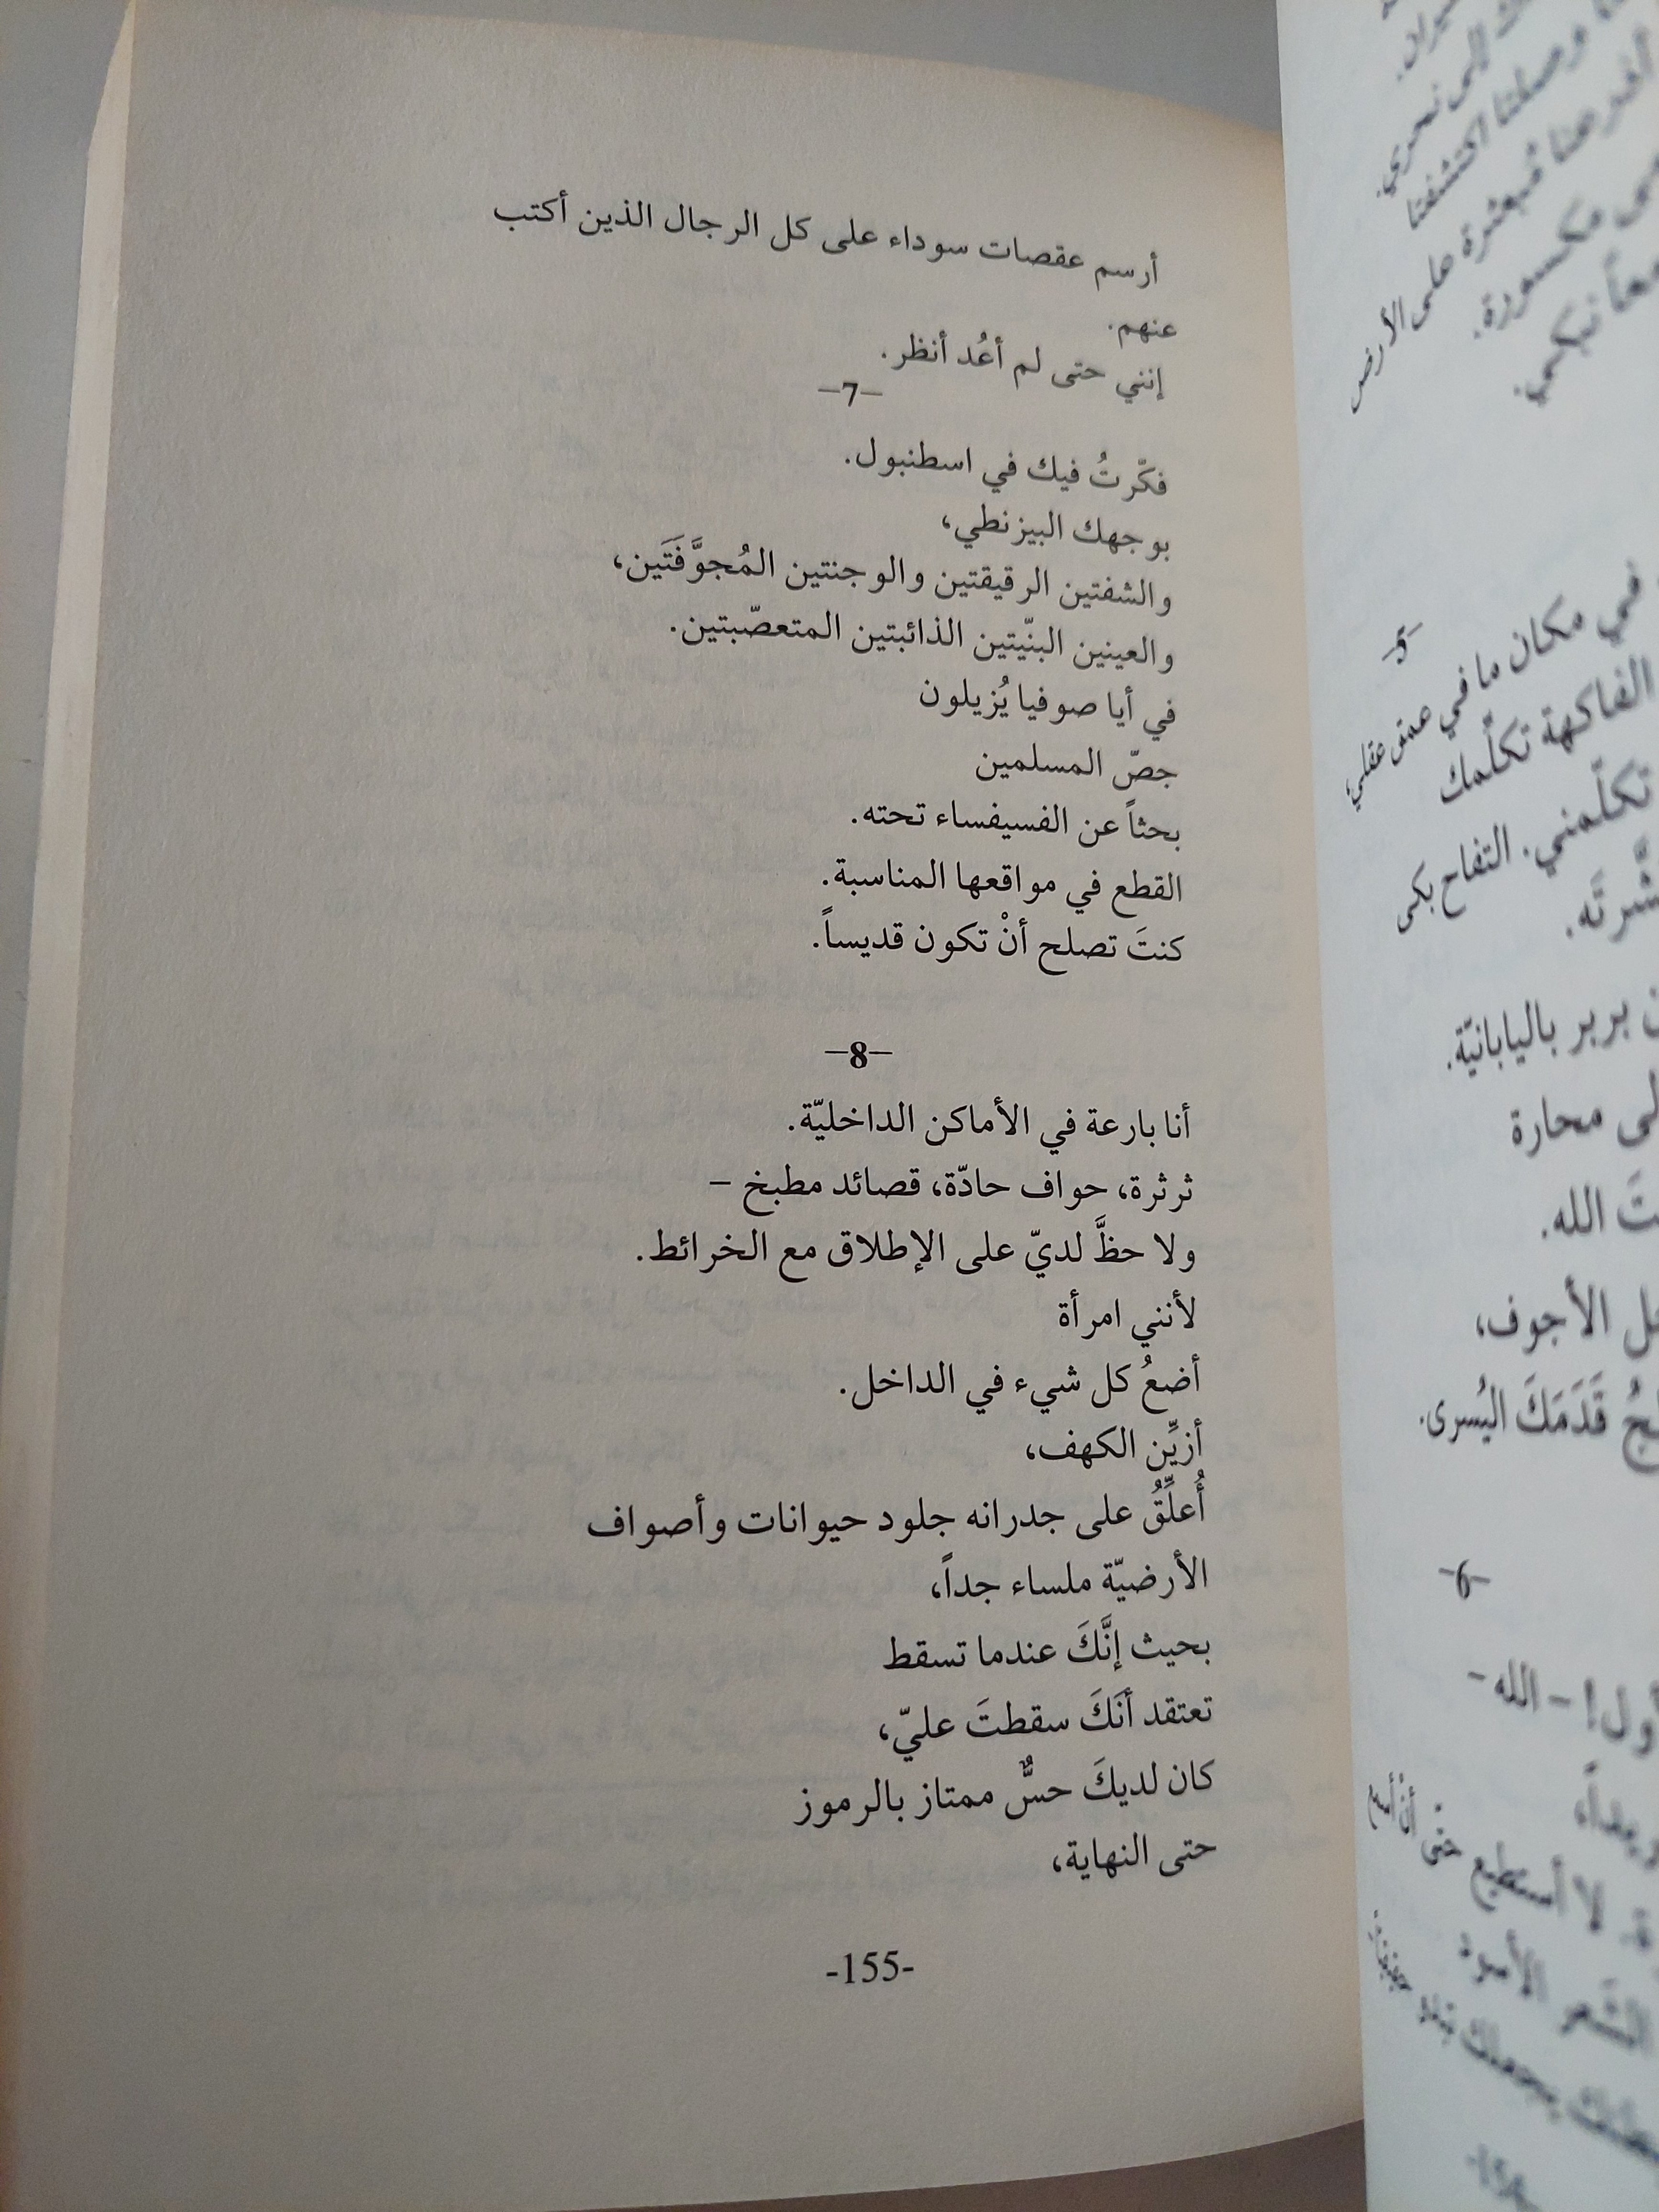 أرسم عقصات سوداء على كل الرجال الذين أكتب
عنهم.
إنني حتى لم أعُد أنظر.
–7–
فكّرتُ فيك في اسطنبول.
بوجهك البيزنطي،
والشفتين الرقيقتين والوجنتين المُجوَّفَتَين،
والعينين البنّيتين الذائبتين المتعصّبتين.
في أيا صوفيا يُزيلون
جصّ المسلمين
بحثاً عن الفسيفساء تحته.
القطع في مواقعها المناسبة.
كنتَ تصلح أنْ تكون قديساً.
–8–
أنا بارعة في الأماكن الداخليّة.
ثرثرة، حواف حادّة، قصائد مطبخ –
ولا حظَّ لديّ على الإطلاق مع الخرائط.
لأنني امرأة
أضعُ كل شيء في الداخل.
أزيِّن الكهف،
أُعلِّقُ على جدرانه جلود حيوانات وأصواف
الأرضيّة ملساء جداً،
بحيث إنَّكَ عندما تسقط
تعتقد أنَكَ سقطتَ عليّ،
كان لديكَ حسٌّ ممتاز بالرموز
حتى النهاية،
-155-
وصلنا اكتشفنا
مُبعثرة على الأرض
مكسورة.
-5-
في مكان ما في عمق عقلي،
الفاكهة تكلّمك
تكلّمني. التفاح بكى
بربر باليابانيّة.
محارة
الله.
الأجوف،
قَدَمَكَ اليُسرى.
-6-
- الله -
لا أستطيع حتّى أنْ أسمع
الشَّعر الأسود